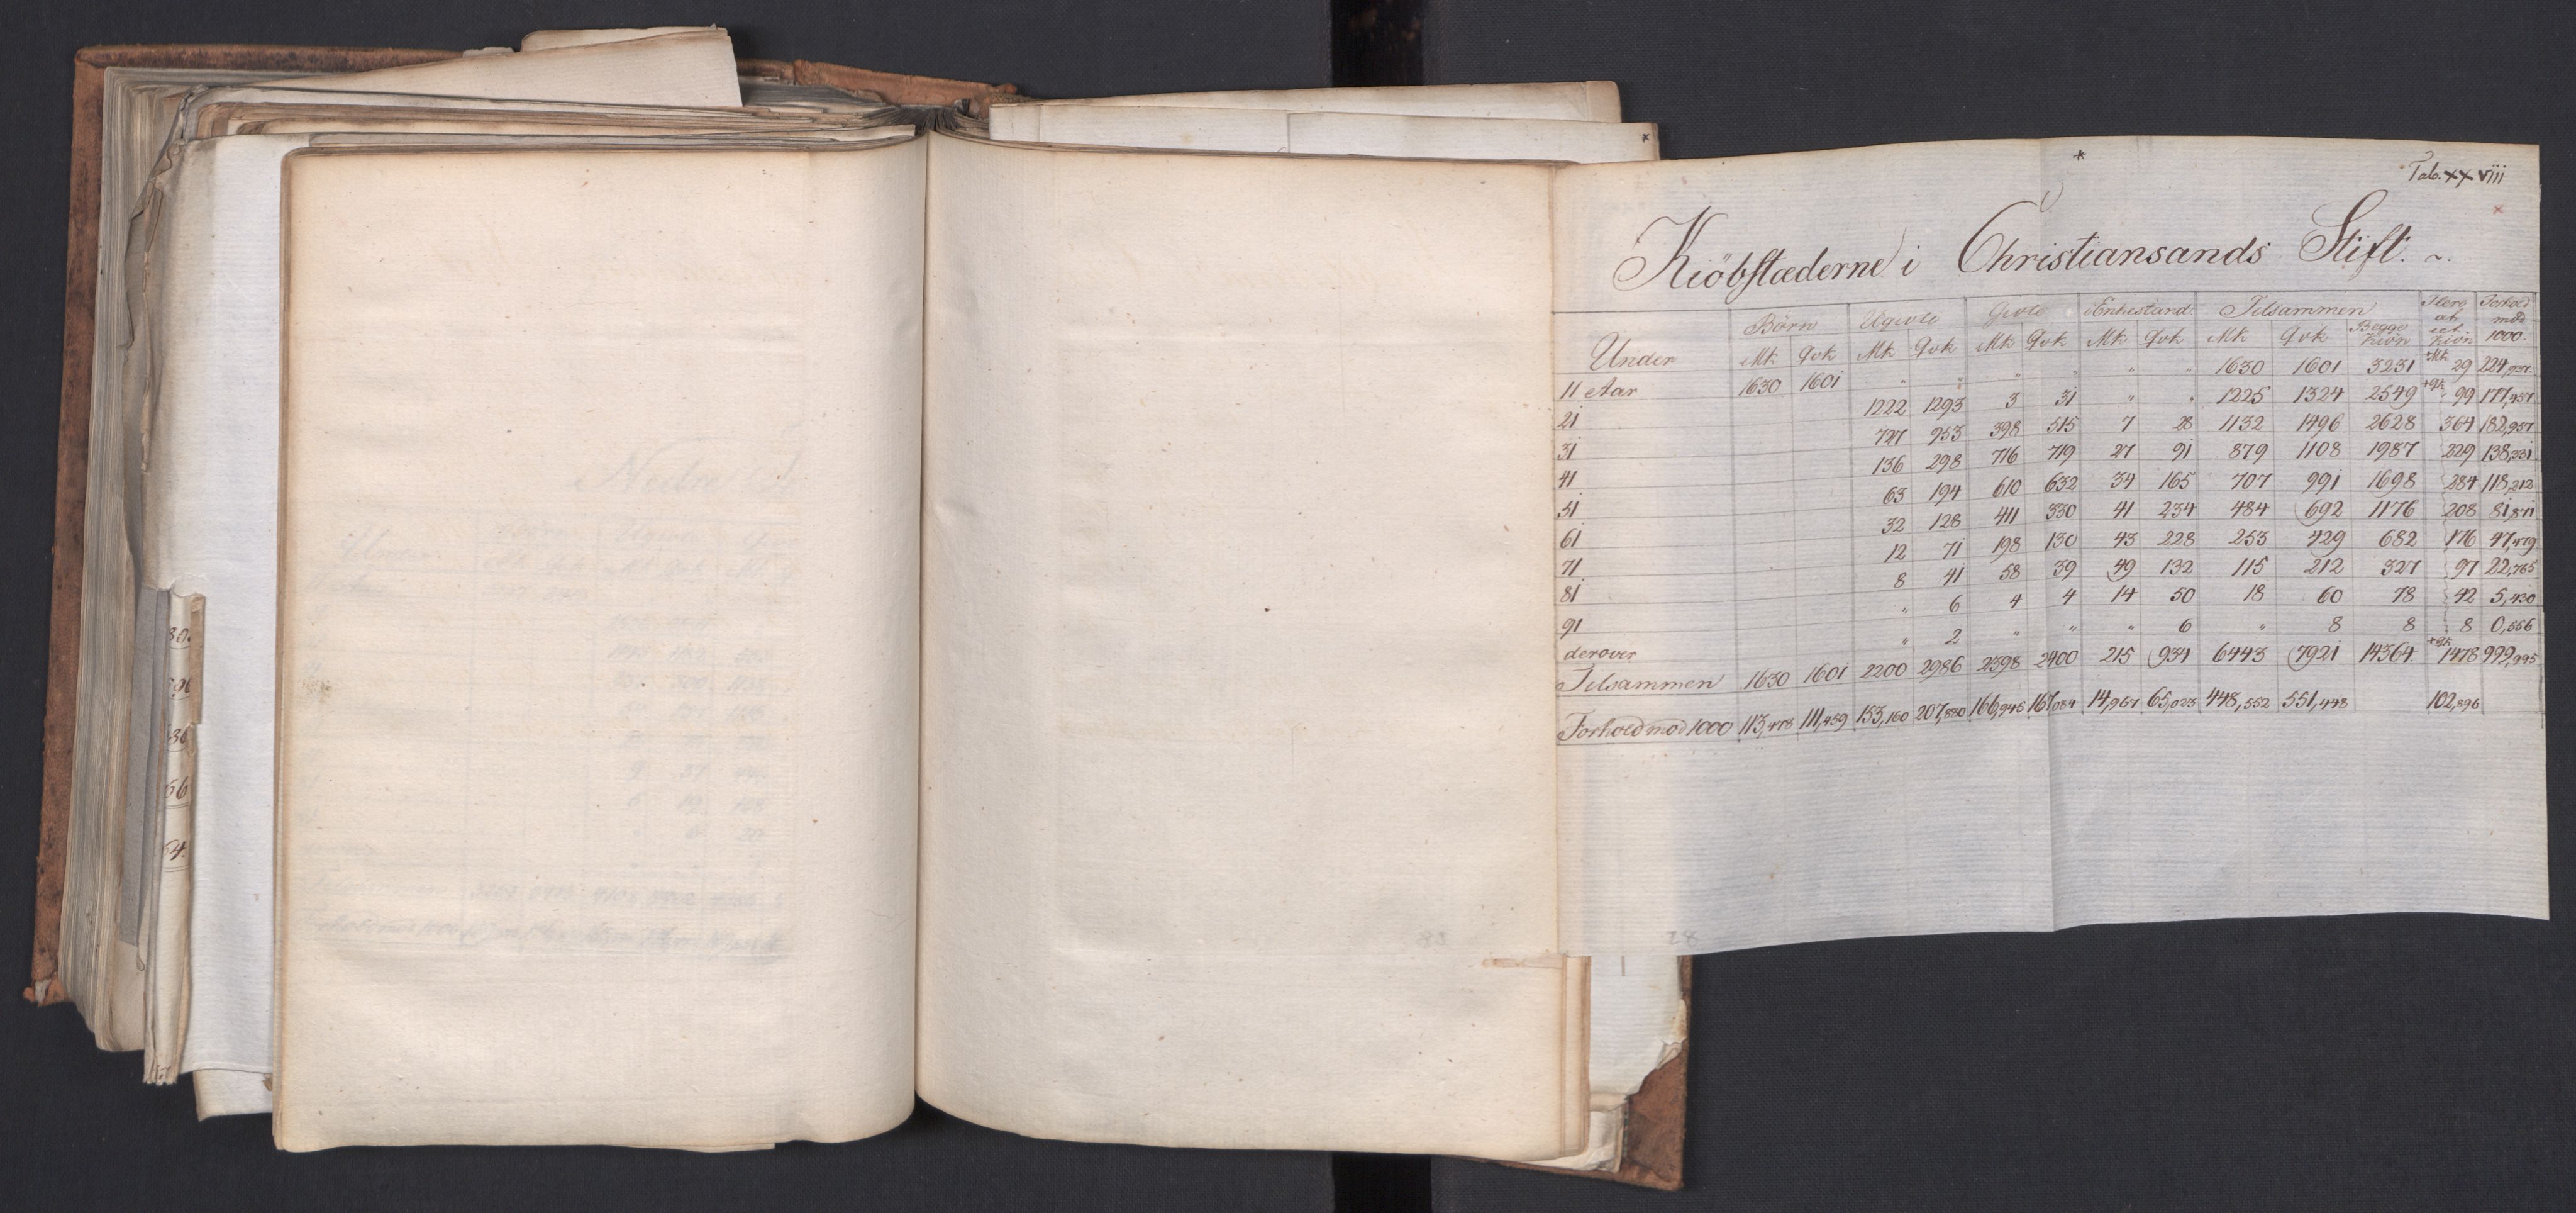 Tab. XXVIII
Kiöbstæderne i Christiansands Stift.
Under Börn Ugivte Givte i Enkestand Tilsammen Flere af et Kiön Forhold mod 1000.
Mk Qvk Mk Qvk Mk Qvk Mk Qvk Mk Qvk Begge Kiön
11 Aar 1630 1601 " " " " " " 1630 1601 3231 +Mk 29 224,937
21 1222 1293 3 31 " " 1225 1324 2549 +Qk 99 177,457
31 727 953 398 515 7 28 1132 1496 2628 364 182,957
41 136 298 716 719 27 91 879 1108 1987 229 138,331
51 63 194 610 632 34 165 707 991 1698 284 118,212
61 32 128 411 330 41 234 484 692 1176 208 81,871
71 12 71 198 130 43 228 253 429 682 176 47,479
81 8 41 58 39 49 132 115 212 327 97 22,765
91 " 6 4 4 14 50 18 60 78 42 5,430
derover " 2 " " " 6 " 8 8 8 0,556
Tilsammen 1630 1601 2200 2986 2398 2400 215 934 6443 7921 14364 +Qk 1478 999,995
Forhold mod 1000 113,478 111,459 153,160 207,880 166,945 167,084 14,967 65,023 448,552 551,448 102,896
28